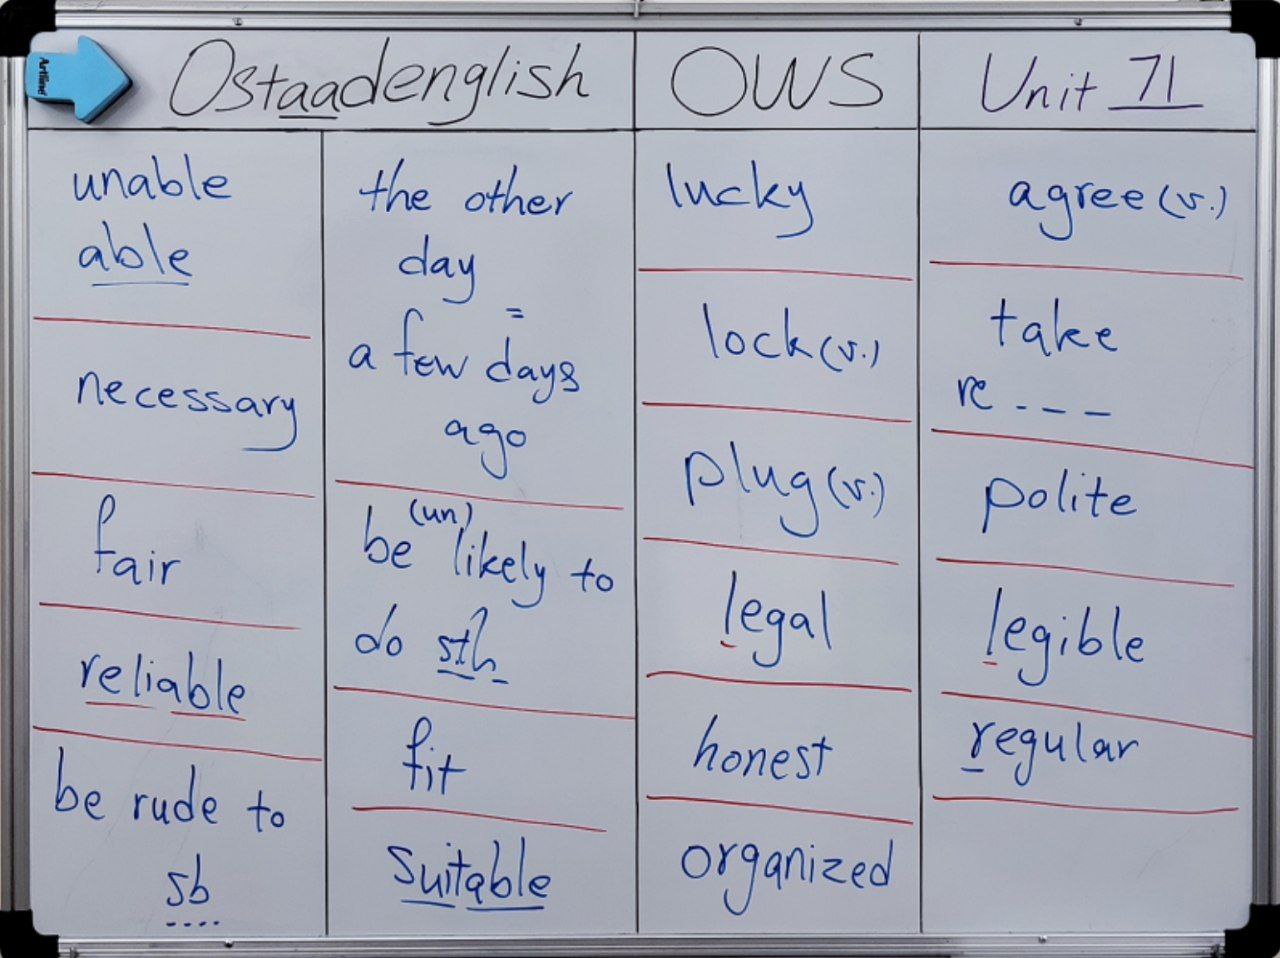 Artline
Ostaadenglish
OWS
Unit 71
unable
able
necessary
fair
reliable
be rude to
sb
the other
day
=
a few days
ago
(un)
be likely to
do sth
fit
suitable
lucky
lock (v.)
plug (v.)
legal
honest
organized
agree (v.)
take
re _ _ _
polite
legible
regular